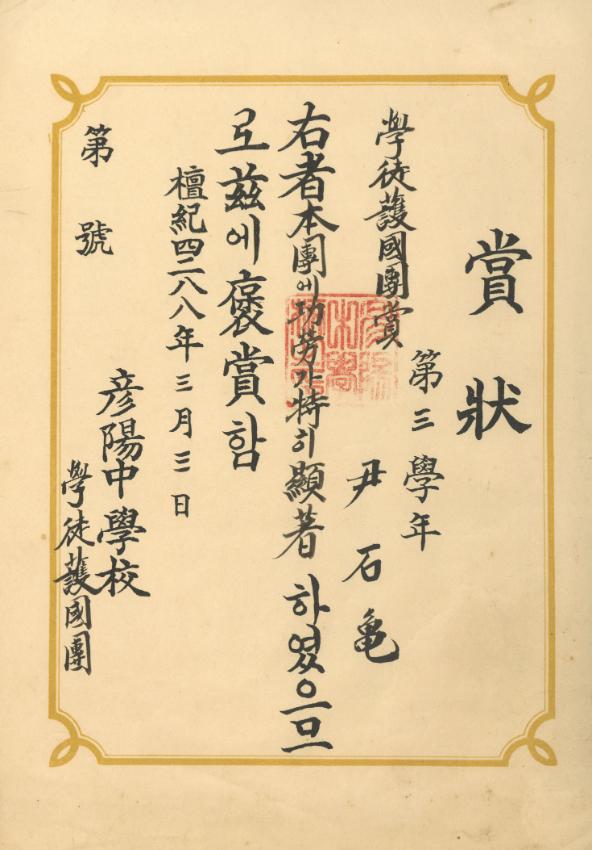 賞狀
第三學年
學徒護國團賞
尹石亀
右者本團에功勞가持히顯著하였으므
로玆에褒賞함
檀紀四二八八年三月三日
第 號
彦陽中學校
學徒護國團